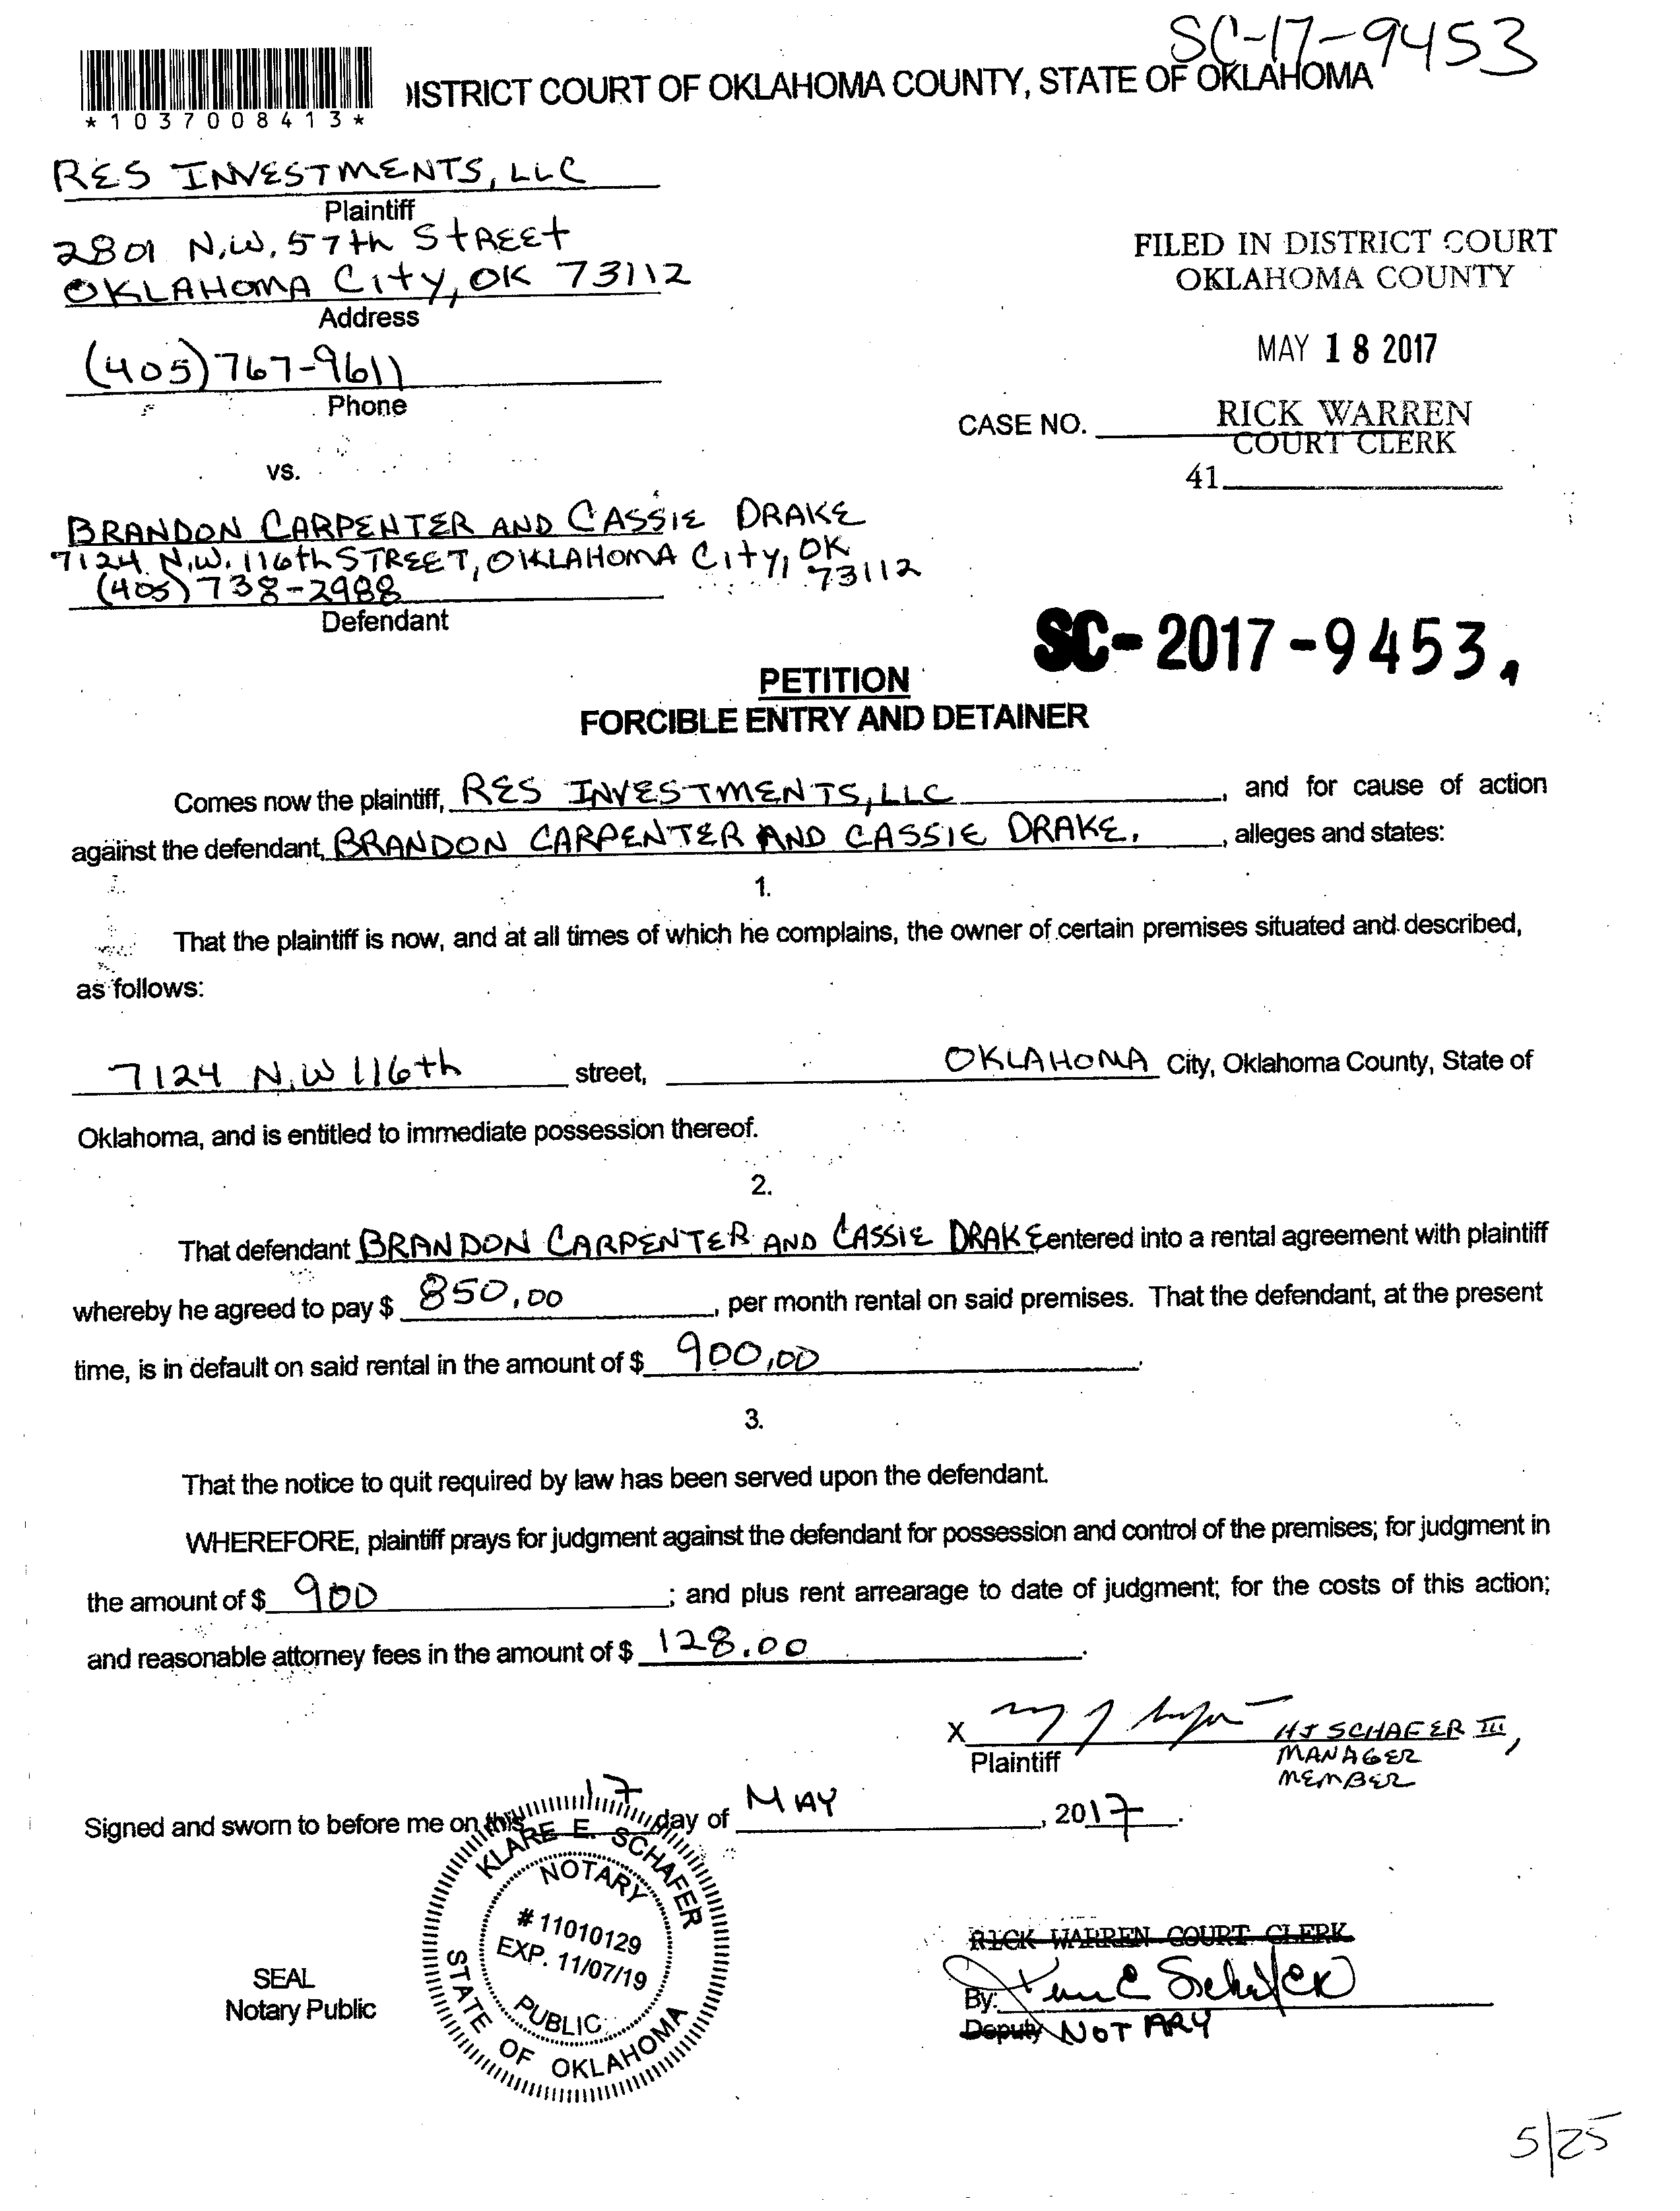 SC-17-9453
*1037008413*
ISTRICT COURT OF OKLAHOMA COUNTY, STATE OF OKLAHOMA
RES INVESTMENTS, LLC
Plaintiff
2801 N.W. 57th STREET
OKLAHOMA City, OK 73112
Address
(405) 767-9611
Phone
FILED IN DISTRICT COURT
OKLAHOMA COUNTY
MAY 18 2017
RICK WARREN
COURT CLERK
CASE NO.
41
vs.
BRANDON CARPENTER AND CASSIE DRAKE
7124 N.W. 116th STREET, OKLAHOMA City, OK
73112
(405) 738-2988
Defendant
SC-2017-9453
PETITION
FORCIBLE ENTRY AND DETAINER
Comes now the plaintiff, RES INVESTMENTS, LLC, and for cause of action
against the defendant, BRANDON CARPENTER AND CASSIE DRAKE, alleges and states:
1.
That the plaintiff is now, and at all times of which he complains, the owner of certain premises situated and described,
as follows:
7124 N.W 116th street, OKLAHOMA City, Oklahoma County, State of
Oklahoma, and is entitled to immediate possession thereof.
2.
That defendant BRANDON CARPENTER AND CASSIE DRAKE entered into a rental agreement with plaintiff
whereby he agreed to pay $ 850.00, per month rental on said premises. That the defendant, at the present
time, is in default on said rental in the amount of $ 900.00.
3.
That the notice to quit required by law has been served upon the defendant.
WHEREFORE, plaintiff prays for judgment against the defendant for possession and control of the premises; for judgment in
the amount of $ 900; and plus rent arrearage to date of judgment; for the costs of this action;
and reasonable attorney fees in the amount of $ 128.00.
X HJ SCHAFER III,
Plaintiff MANAGER
MEMBER
Signed and sworn to before me on this 17 day of MAY, 2017.
KLARE E. SCHAFER
NOTARY
# 11010129
EXP. 11/07/19
PUBLIC
STATE OF OKLAHOMA
SEAL
Notary Public
RICK WARREN COURT CLERK
By:
Deputy NOTARY
5/25